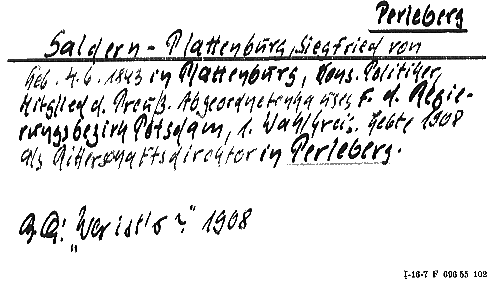 Perleberg
Saldern-Plattenburg, Siegfried von
Geb. 4.6.1843 in Plattenburg, Kons. Politiker,
Mitglied d. Preuß. Abgeordnetenhauses f. d. Regie-
rungsbezirk Potsdam, 1. Wahlkreis. Lebte 1908
als Ritterschaftsdirektor in Perleberg.
B.Q.: "Wer ist's?" 1908
I-16-7 F 696 55 102